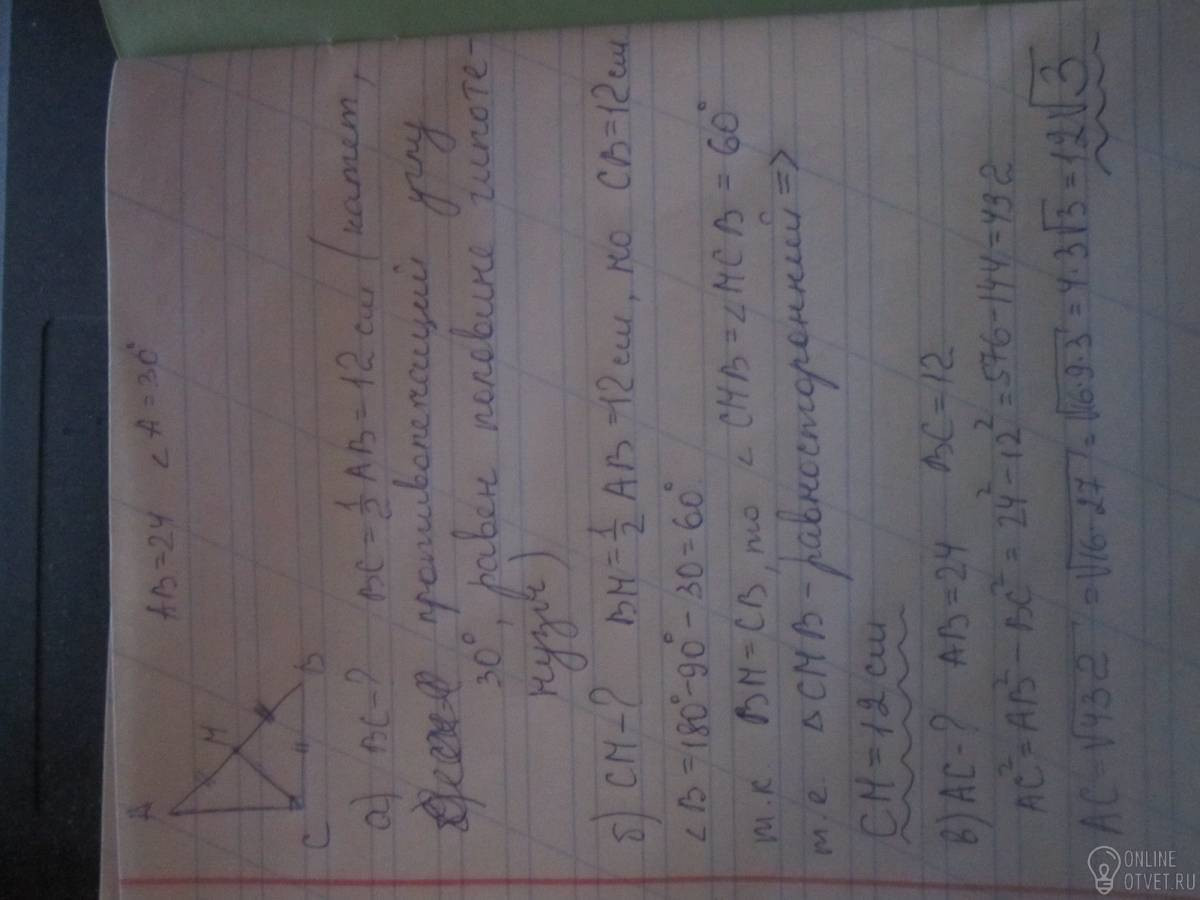 A
M
C
B
AB=24 ∠A=30°
а) BC-? BC=½AB=12 см (катет,
противолежащий углу
30°, равен половине гипоте-
нузы)
б) CM-? BM=½AB=12 см, но CB=12 см
∠B=180°-90°-30=60°
т.к. BM=CB, то ∠CMB=∠MCB=60°
т.е. △CMB-равносторонний=>
CM=12 см
в) AC-? AB=24 BC=12
AC²=AB²-BC²=24²-12²=576-144=432
AC=√432=√16·27=√16·9·3=4·3√3=12√3
ONLINE
OTVET.RU